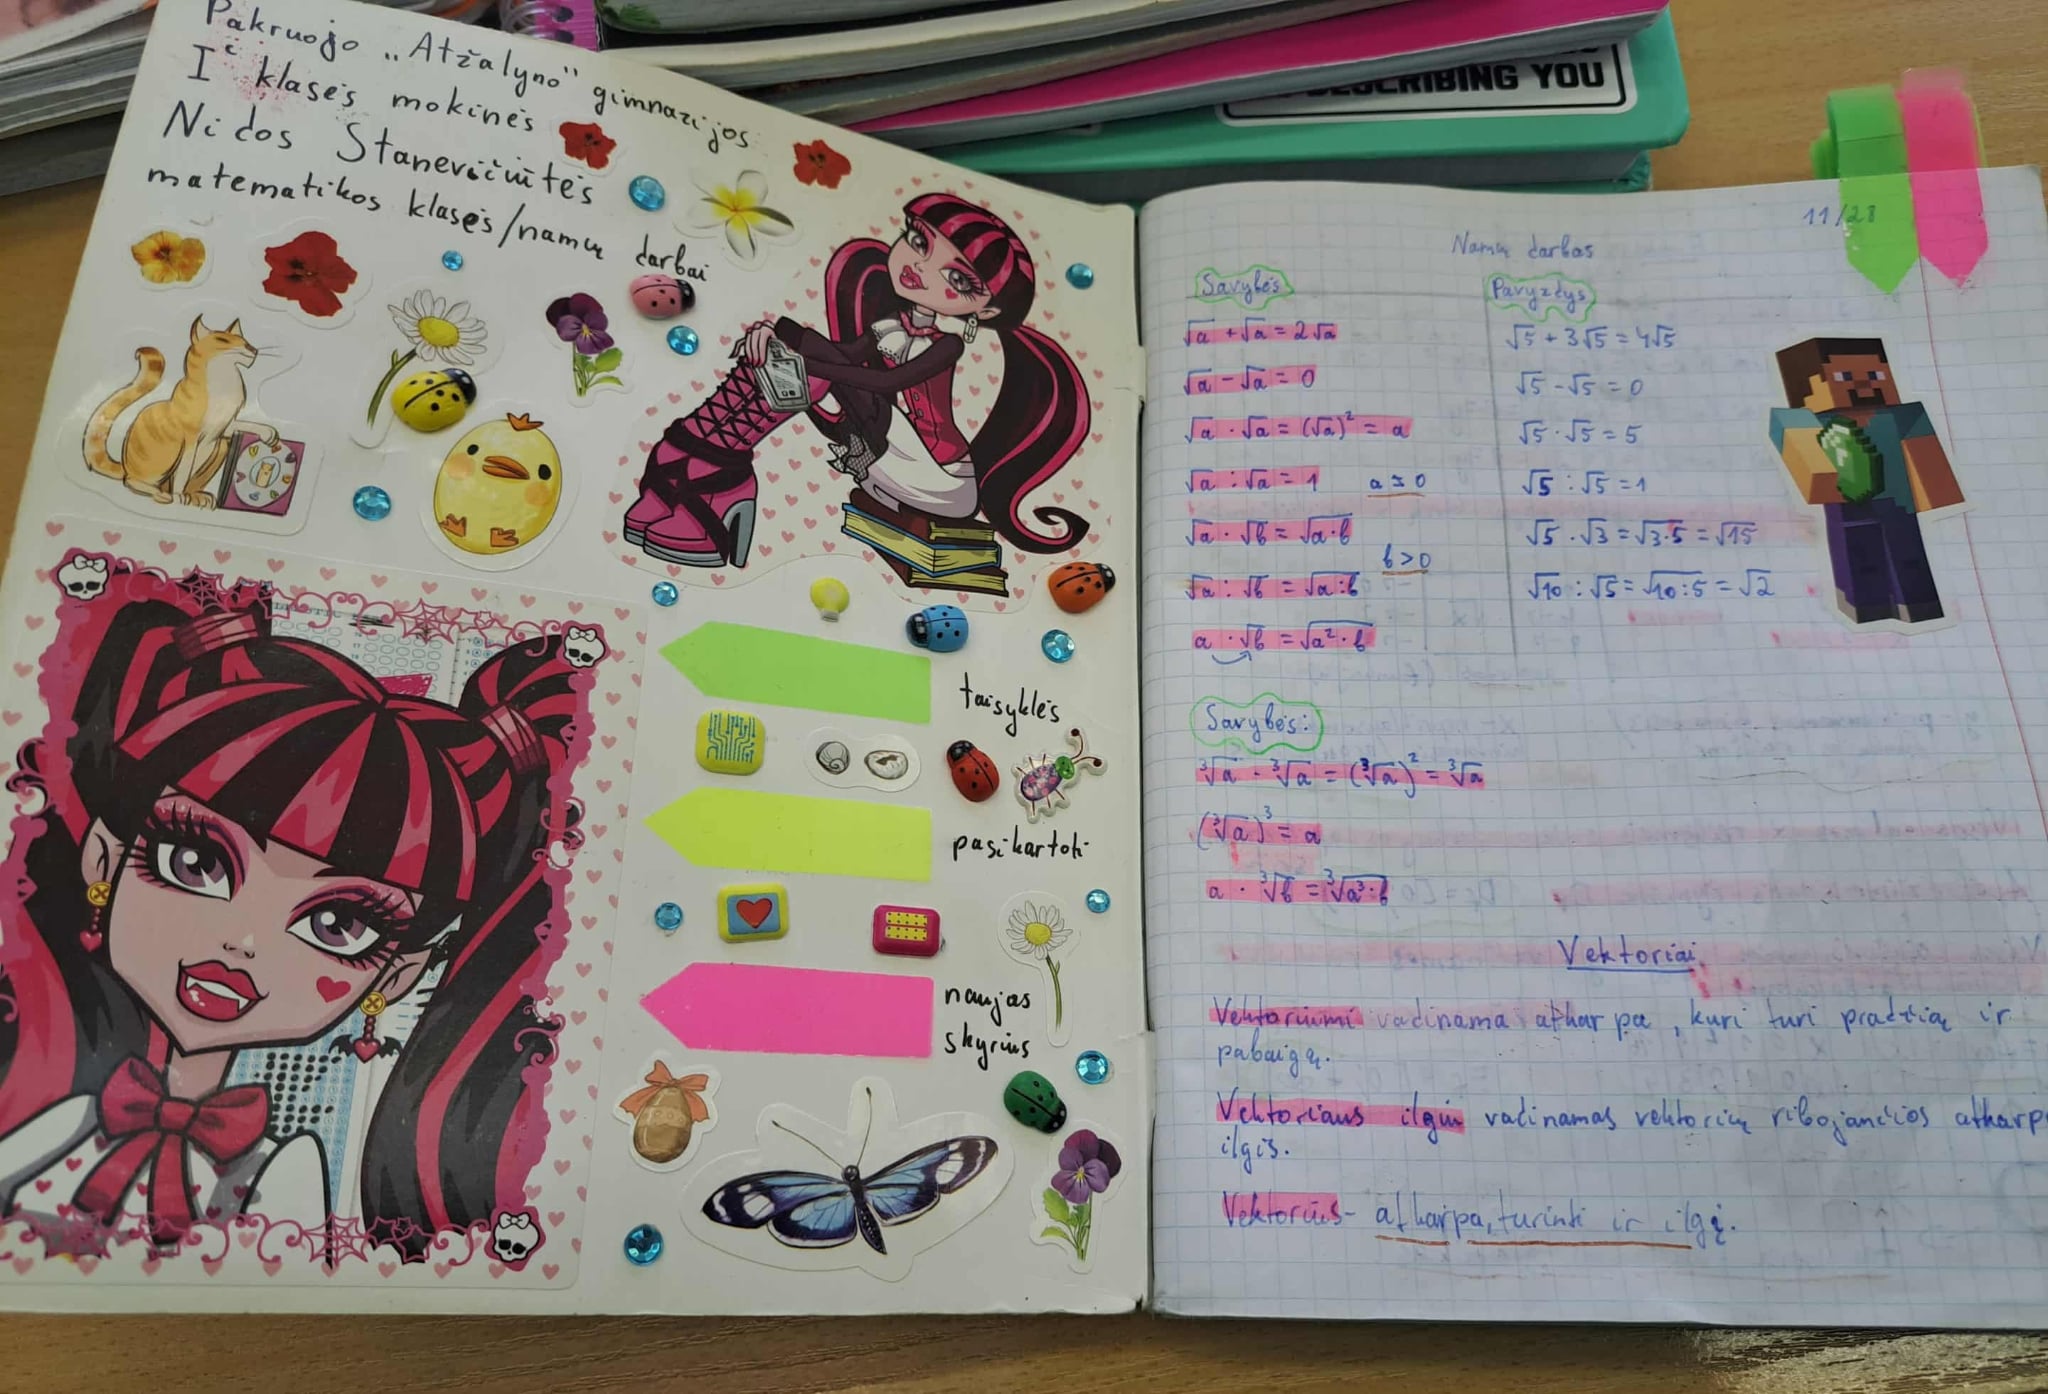 Pakruojo „Atžalyno" gimnazijos
I klasės mokinės
Nidos Stanevičiūtės
matematikos klasės/namų darbai
taisyklės
pasikartoti
naujas
skyrius
DESCRIBING YOU
11/28
Namų darbas
Savybės Pavyzdys
√a + √a = 2√a √5 + 3√5 = 4√5
√a - √a = 0 √5 - √5 = 0
√a · √a = (√a)² = a √5 · √5 = 5
√a : √a = 1 a ≥ 0 √5 : √5 = 1
√a · √b = √a·b √5 · √3 = √3·5 = √15
b > 0
√a : √b = √a:b √10 : √5 = √10:5 = √2
a · √b = √a²·b
Savybės:
∛a · ∛a = (∛a)² = ∛a
(∛a)³ = a
a · ∛b = ∛a³·b
Vektoriai
Vektoriumi vadinama atkarpa, kuri turi pradžią ir
pabaigą.
Vektoriaus ilgiu vadinamas vektorių ribojančios atkarp
ilgis.
Vektorius- atkarpa, turinti ir ilgį.